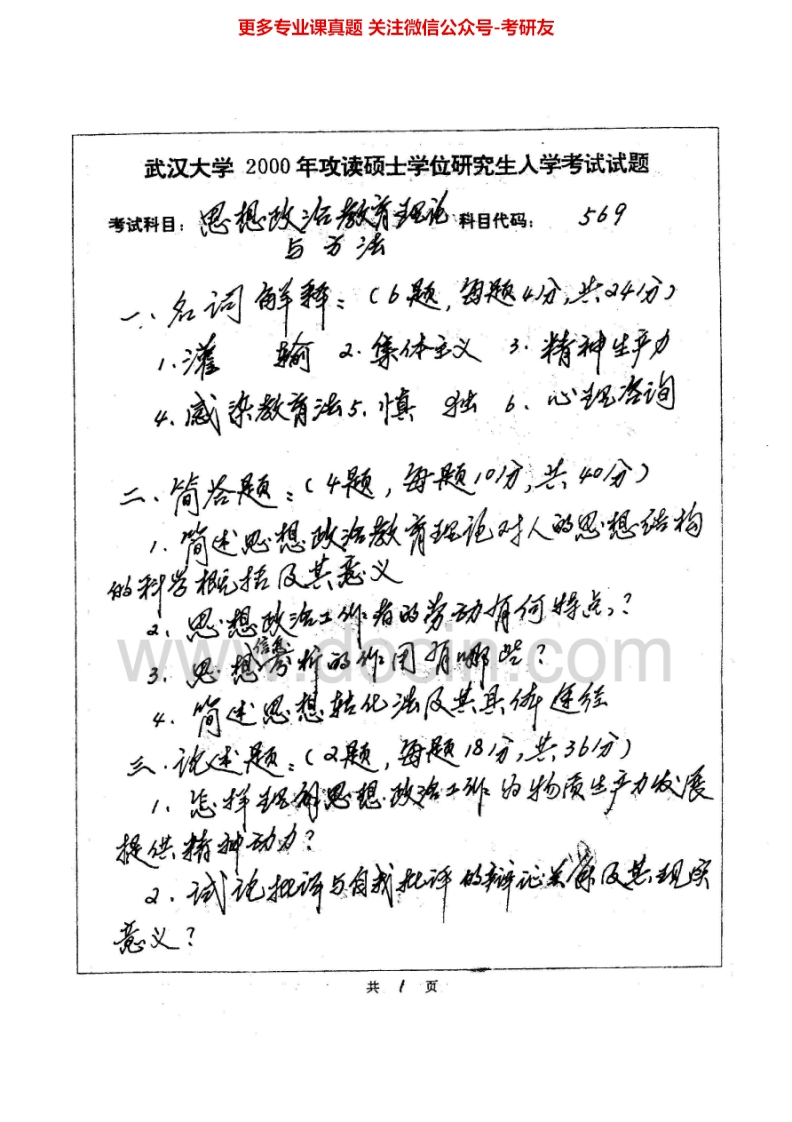 更多专业课真题 关注微信公众号-考研友
武汉大学 2000 年攻读硕士学位研究生入学考试试题
考试科目: 思想政治教育理论 科目代码: 569
与方法
一、名词解释:(6题,每题4分,共24分)
1.灌 输 2.集体主义 3.精神生产力
4.感染教育法 5.慎 独 6.心理咨询
二、简答题:(4题,每题10分,共40分)
1.简述思想政治教育理论对人的思想结构
的科学概括及其意义
2.思想政治工作者的劳动有何特点?
3.思想信息分析的作用有哪些?
4.简述思想转化法及其具体途径
三、论述题:(2题,每题18分,共36分)
1.怎样理解思想政治工作为物质生产力发展
提供精神动力?
2.试论批评与自我批评的辩证关系及其现实
意义?
www.docin.com
共 1 页